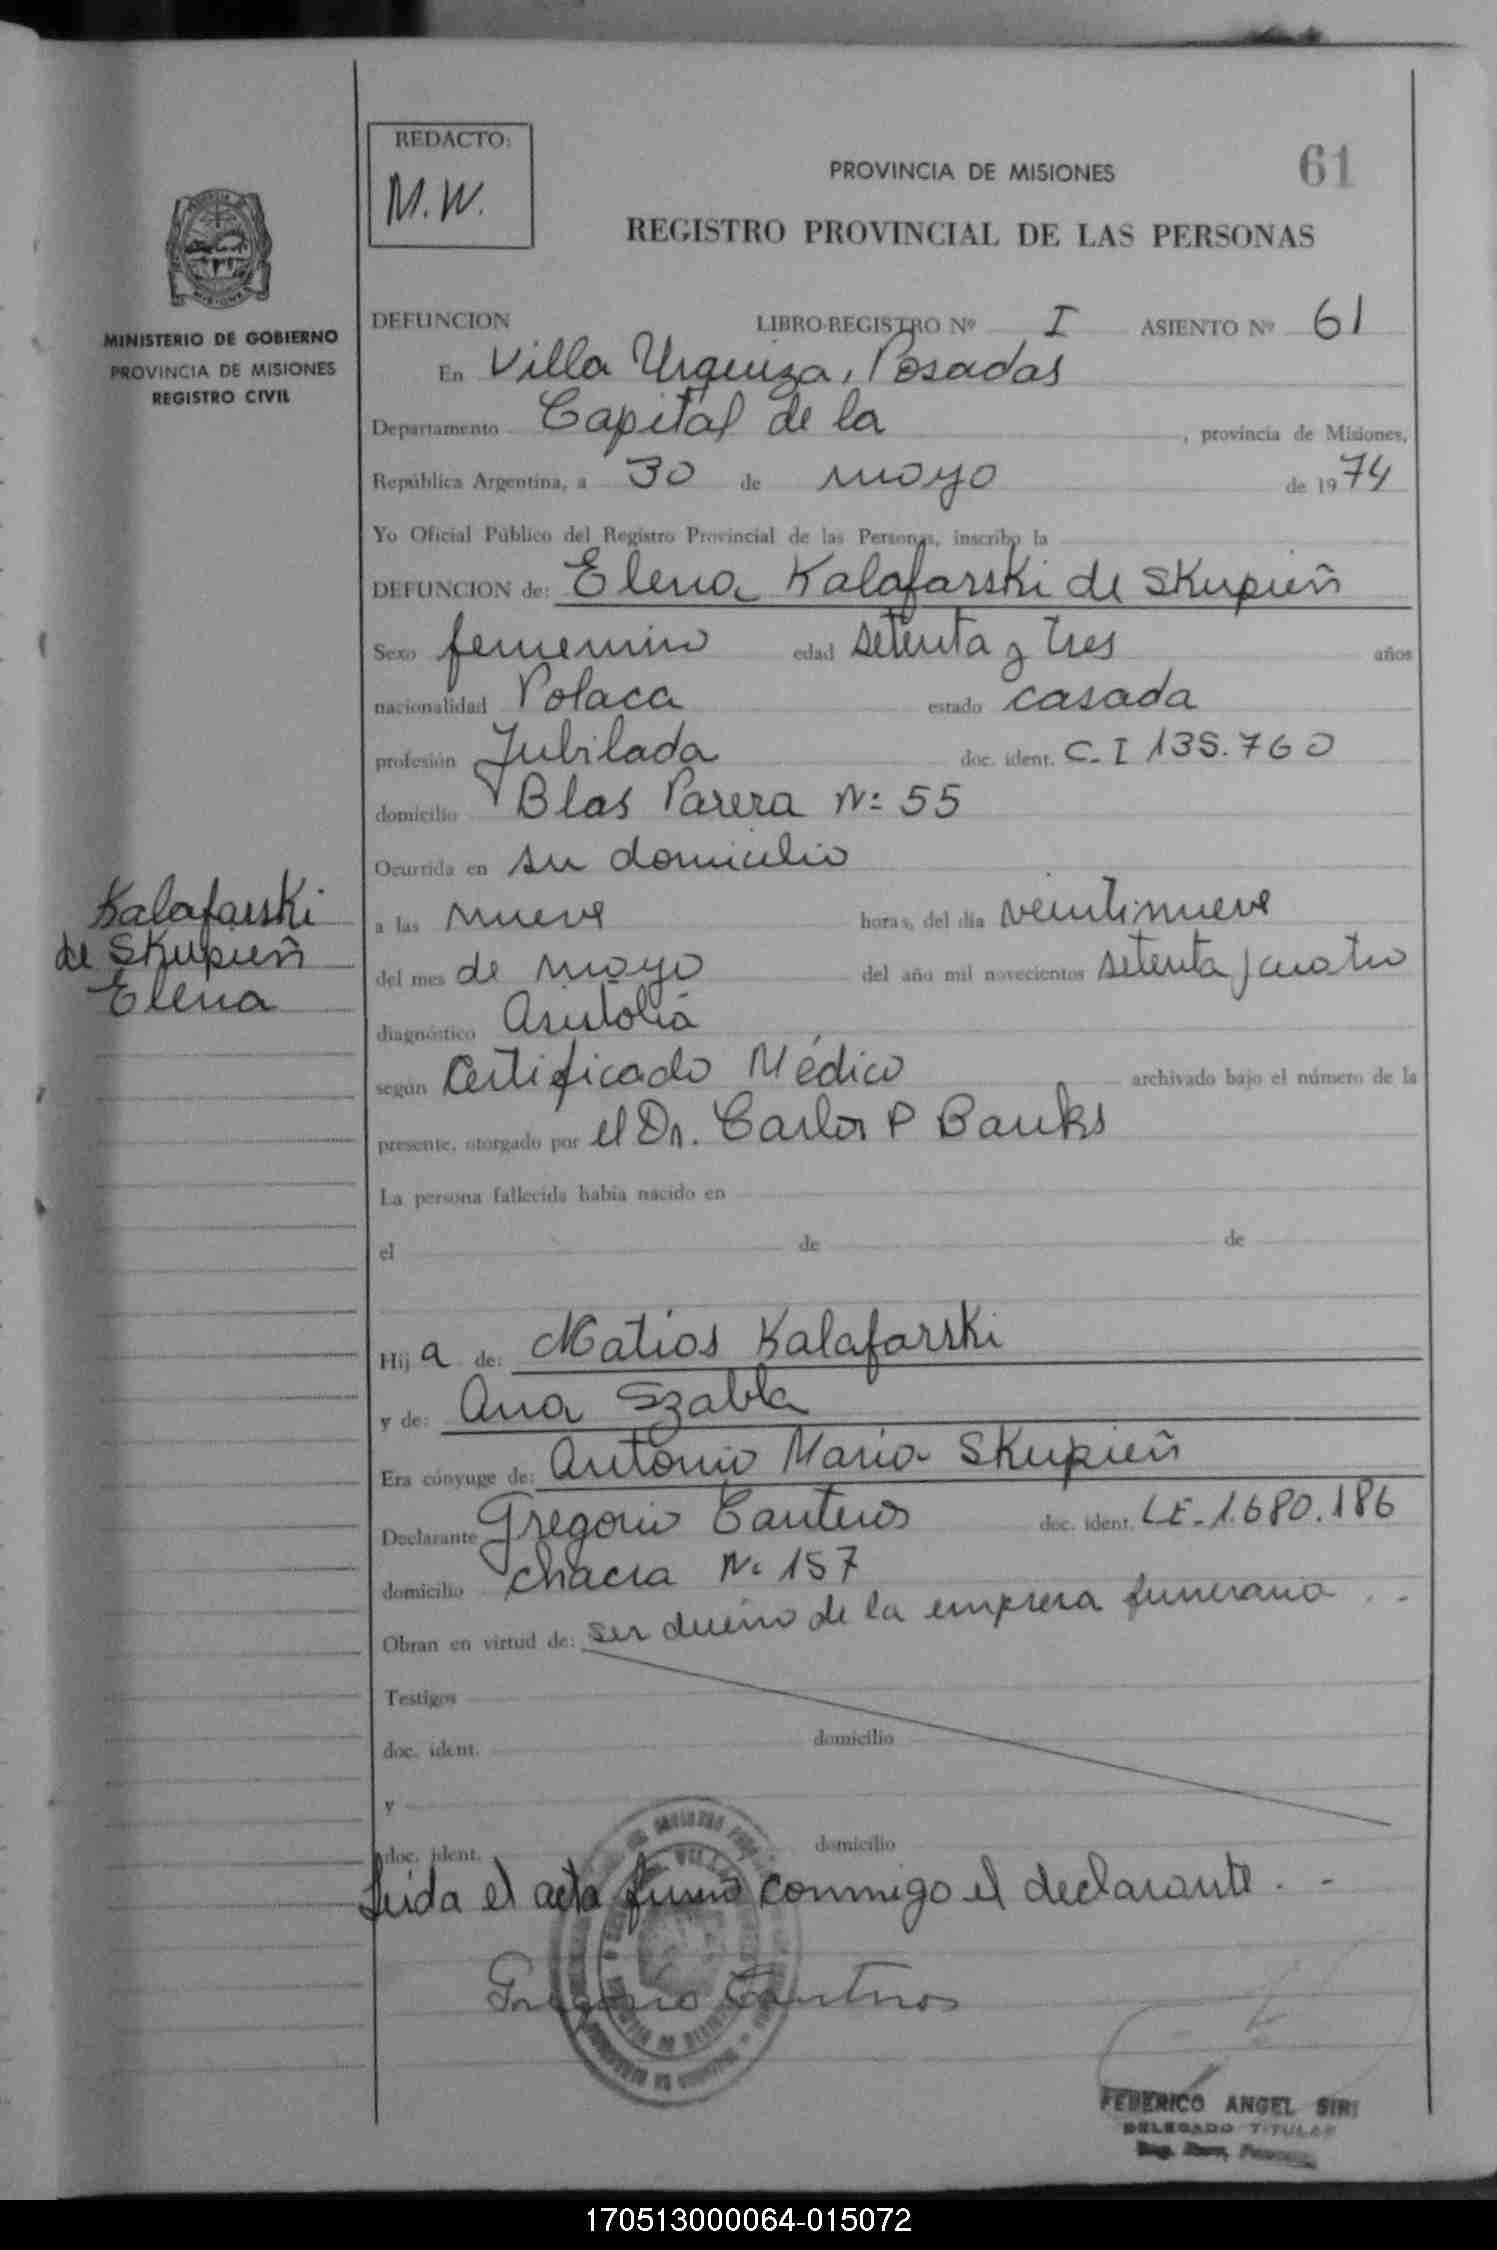 REDACTO:
M.W.
PROVINCIA DE MISIONES
61
REGISTRO PROVINCIAL DE LAS PERSONAS
MINISTERIO DE GOBIERNO
PROVINCIA DE MISIONES
REGISTRO CIVIL
DEFUNCION LIBRO-REGISTRO Nº I ASIENTO Nº 61
En Villa Urquiza, Posadas
Departamento Capital de la , provincia de Misiones,
República Argentina, a 30 de mayo de 1974
Yo Oficial Público del Registro Provincial de las Personas, inscribo la
DEFUNCION de: Elena Kalafarski de Skupień
Sexo femenino edad setenta y tres años
nacionalidad Polaca estado casada
profesión Jubilada doc. ident. C.I 135.760
domicilio Blas Parera Nº 55
Ocurrida en su domicilio
a las nueve horas, del día veintinueve
del mes de mayo del año mil novecientos setenta y cuatro
diagnóstico Asistolia
según Certificado Médico archivado bajo el número de la
presente, otorgado por el Dr. Carlos P Banks
La persona fallecida había nacido en
el de de
Hija de: Matios Kalafarski
y de: Ana Szabla
Era cónyuge de: Antonio Mario Skupień
Declarante Gregorio Canteros doc. ident. LE. 1.680.186
domicilio chacra Nº 157
Obran en virtud de: ser dueño de la empresa funeraria . -
Testigos
doc. ident. domicilio
y
doc. ident. domicilio
Leida el acta firma conmigo el declarante. -
Gregorio Canteros
Kalafarski
de Skupień
Elena
FEDERICO ANGEL SIRI
DELEGADO TITULAR
170513000064-015072